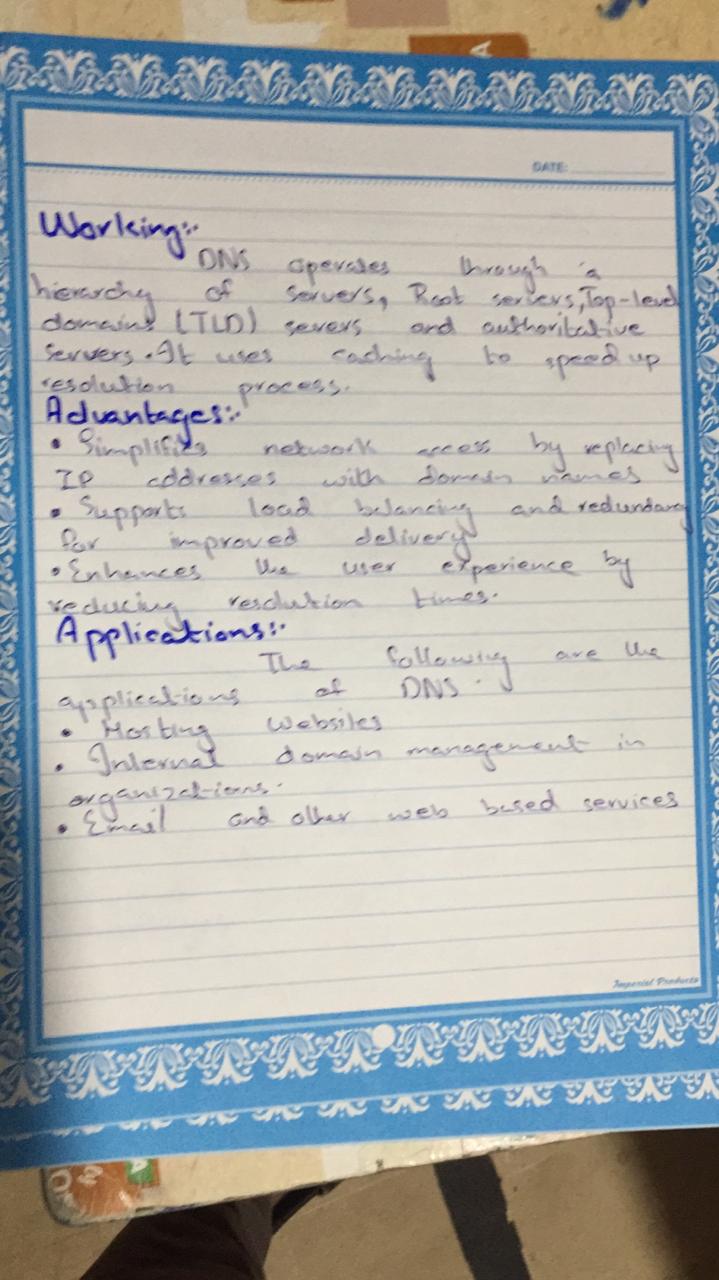 DATE:
Working:-
DNS operates through a
hierarchy of servers, Root servers, Top-level
domains (TLD) severs and authoritative
servers. It uses caching to speed up
resolution process.
Advantages:-
• Simplifies network access by replacing
IP addresses with domain names
• Supports load balancing and redundancy
for improved delivery
• Enhances the user experience by
reducing resolution times.
Applications:-
The following are the
applications of DNS.
• Hosting websites
• Internal domain management in
organizations.
• Email and other web based services
Imperial Products